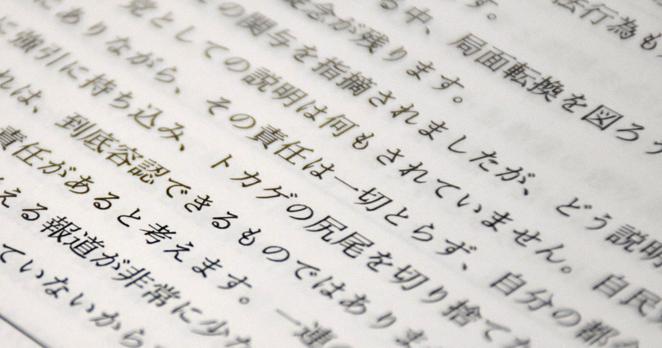 法行為も
す。
る中、局面転換を図ろう
念が残ります。
の関与を指摘されましたが、どう説明
党としての説明は何もされていません。自民
にありながら、その責任は一切とらず、自分の都合
に強引に持ち込み、トカゲの尻尾を切り捨てた
れは、到底容認できるものではありま
責任があると考えます。一連の
える報道が非常に少な
ていないから